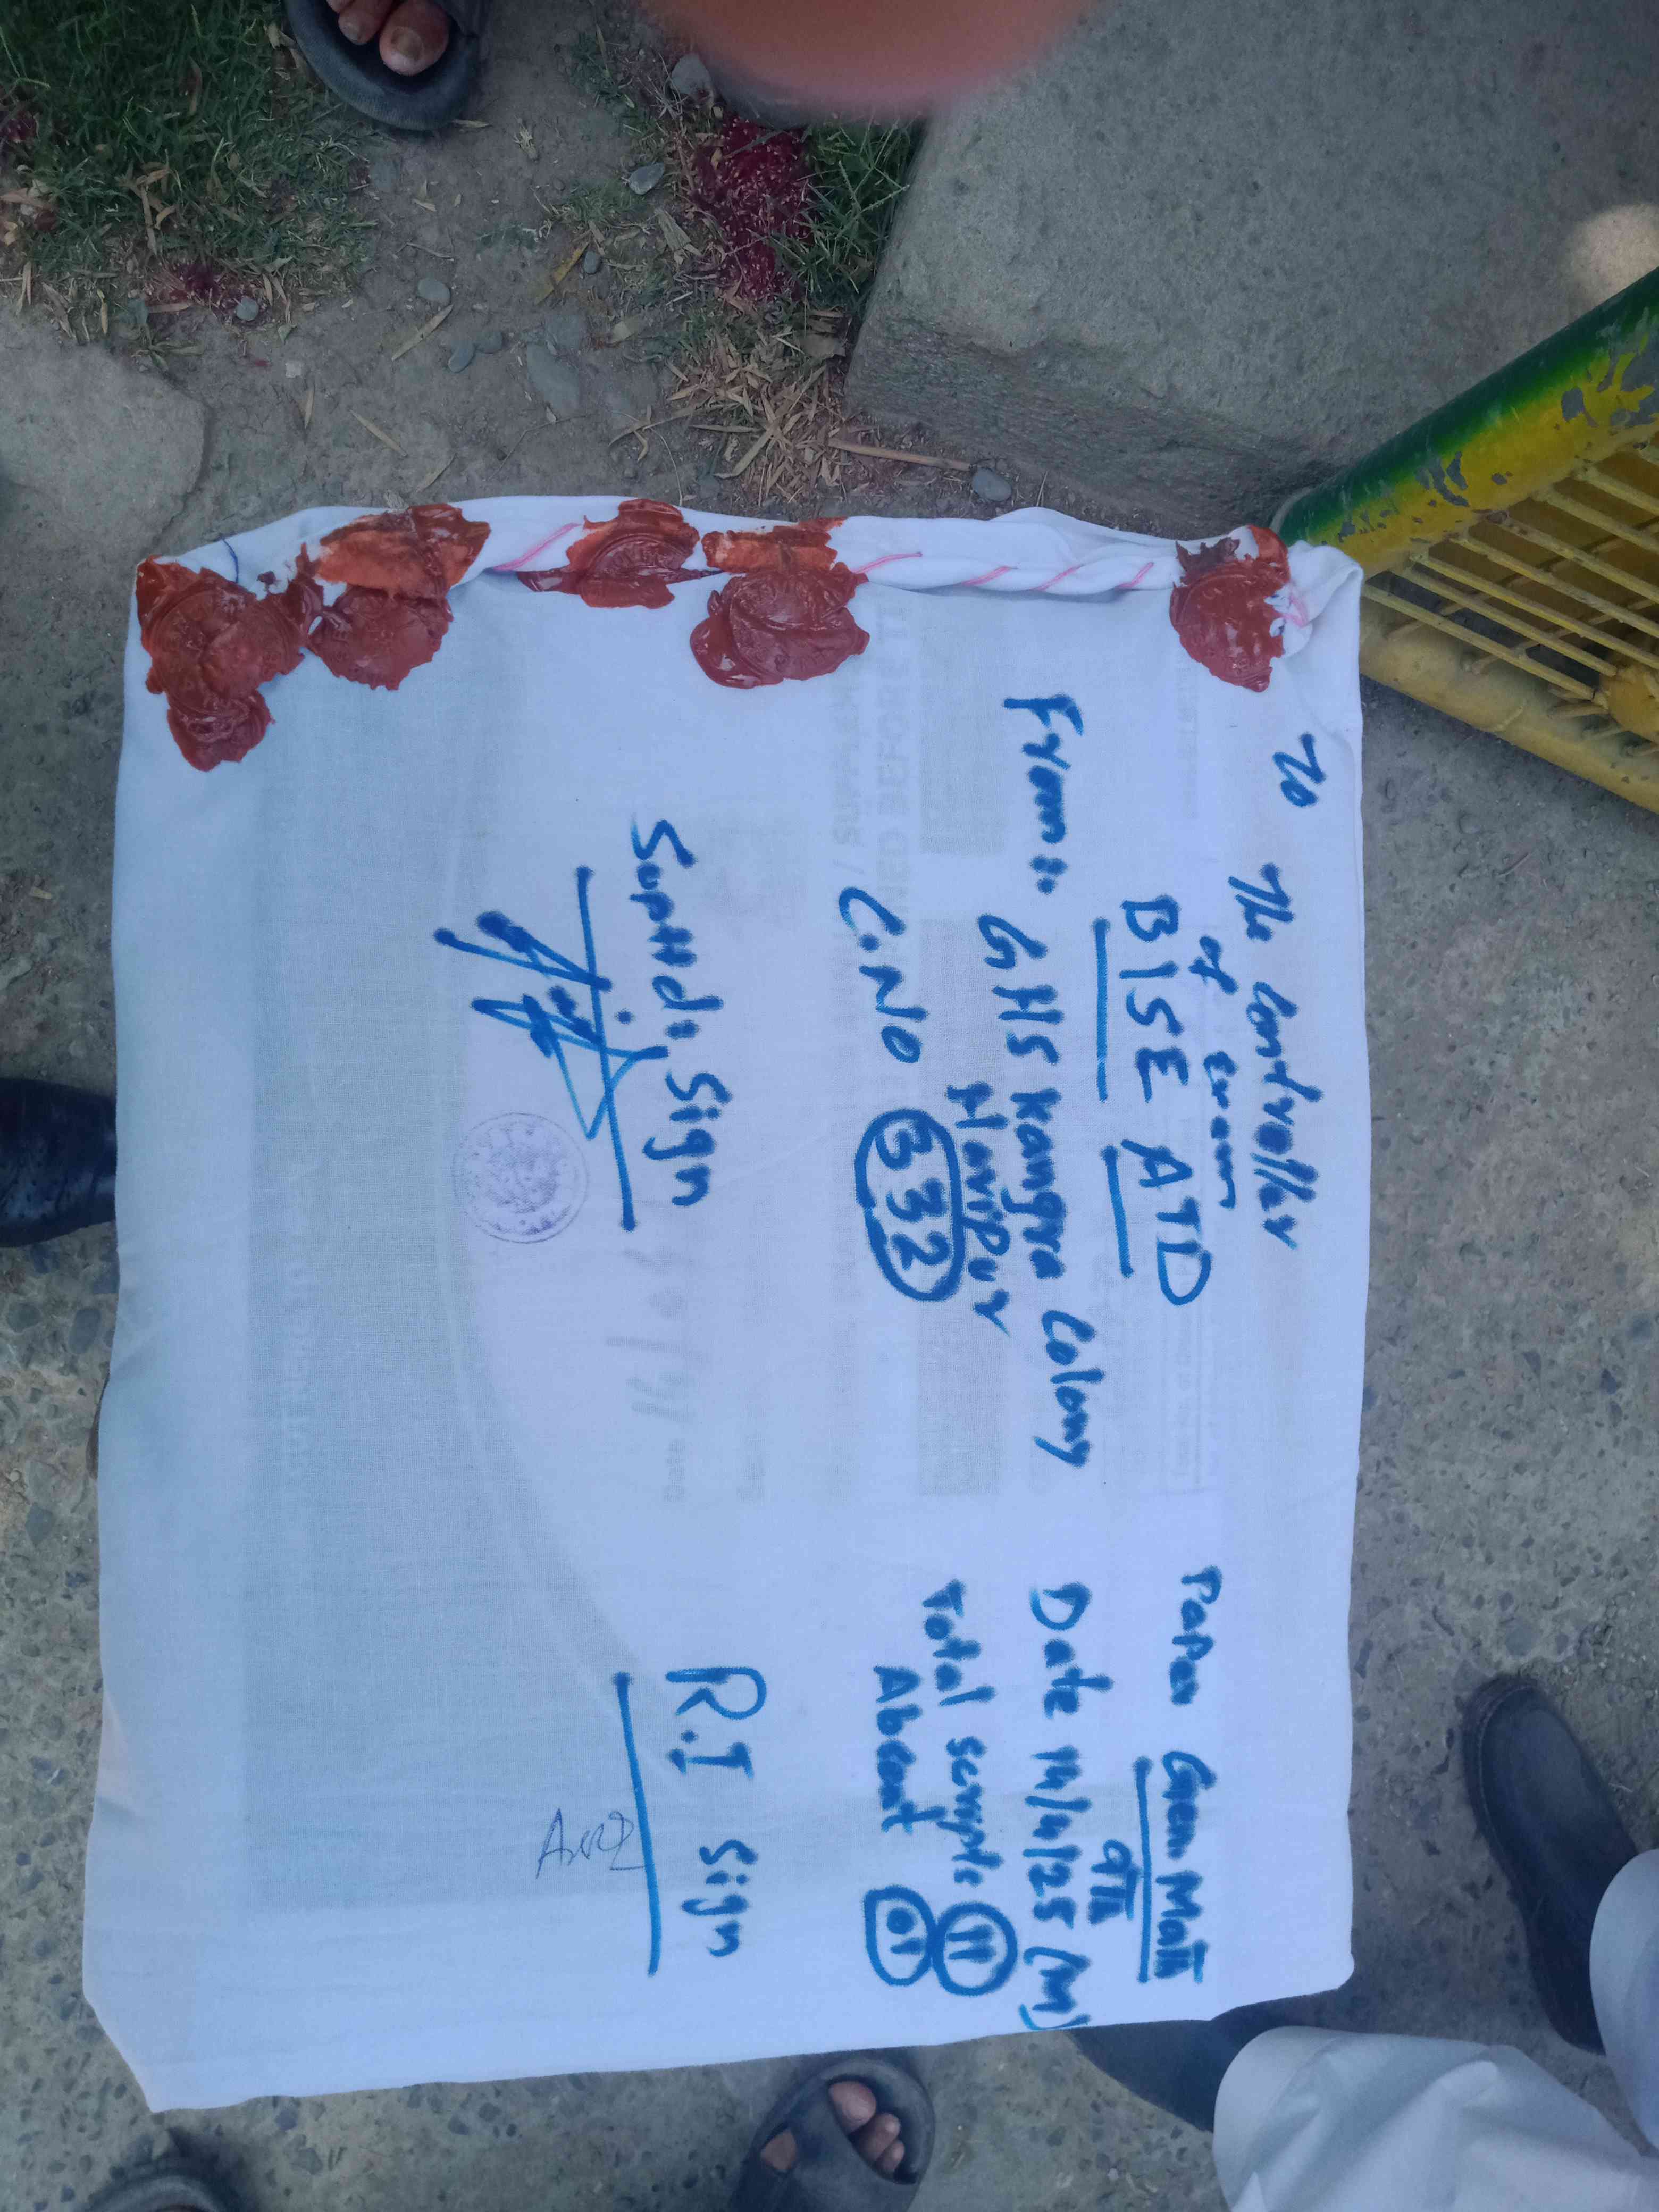 To
The Controller
of Exam
BISE ATD
From:-
GHS Kangra Colony
Haripur
C.No 332
Paper Gen Math
9th
Date 14/4/25 (M)
Total scripts 11
Absent 01
Suptd: Sign
R.I Sign